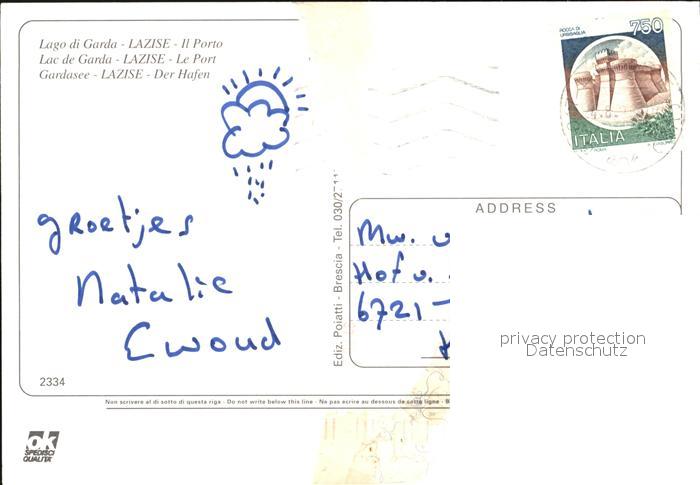 Lago di Garda - LAZISE - Il Porto
Lac de Garda - LAZISE - Le Port
Gardasee - LAZISE - Der Hafen
ROCCA DI URBISAGLIA
750
ITALIA
ROMA
Groetjes
Natalie
Ewoud
2334
Ediz. Poiatti - Brescia - Tel. 030/2
ADDRESS
Mw. v
Hof v.
6721-
privacy protection
Datenschutz
Non scrivere al di sotto di questa riga - Do not write below this line - Ne pas ecrire au dessous de cette ligne - B
ok
SPEDISCI
QUALITA'